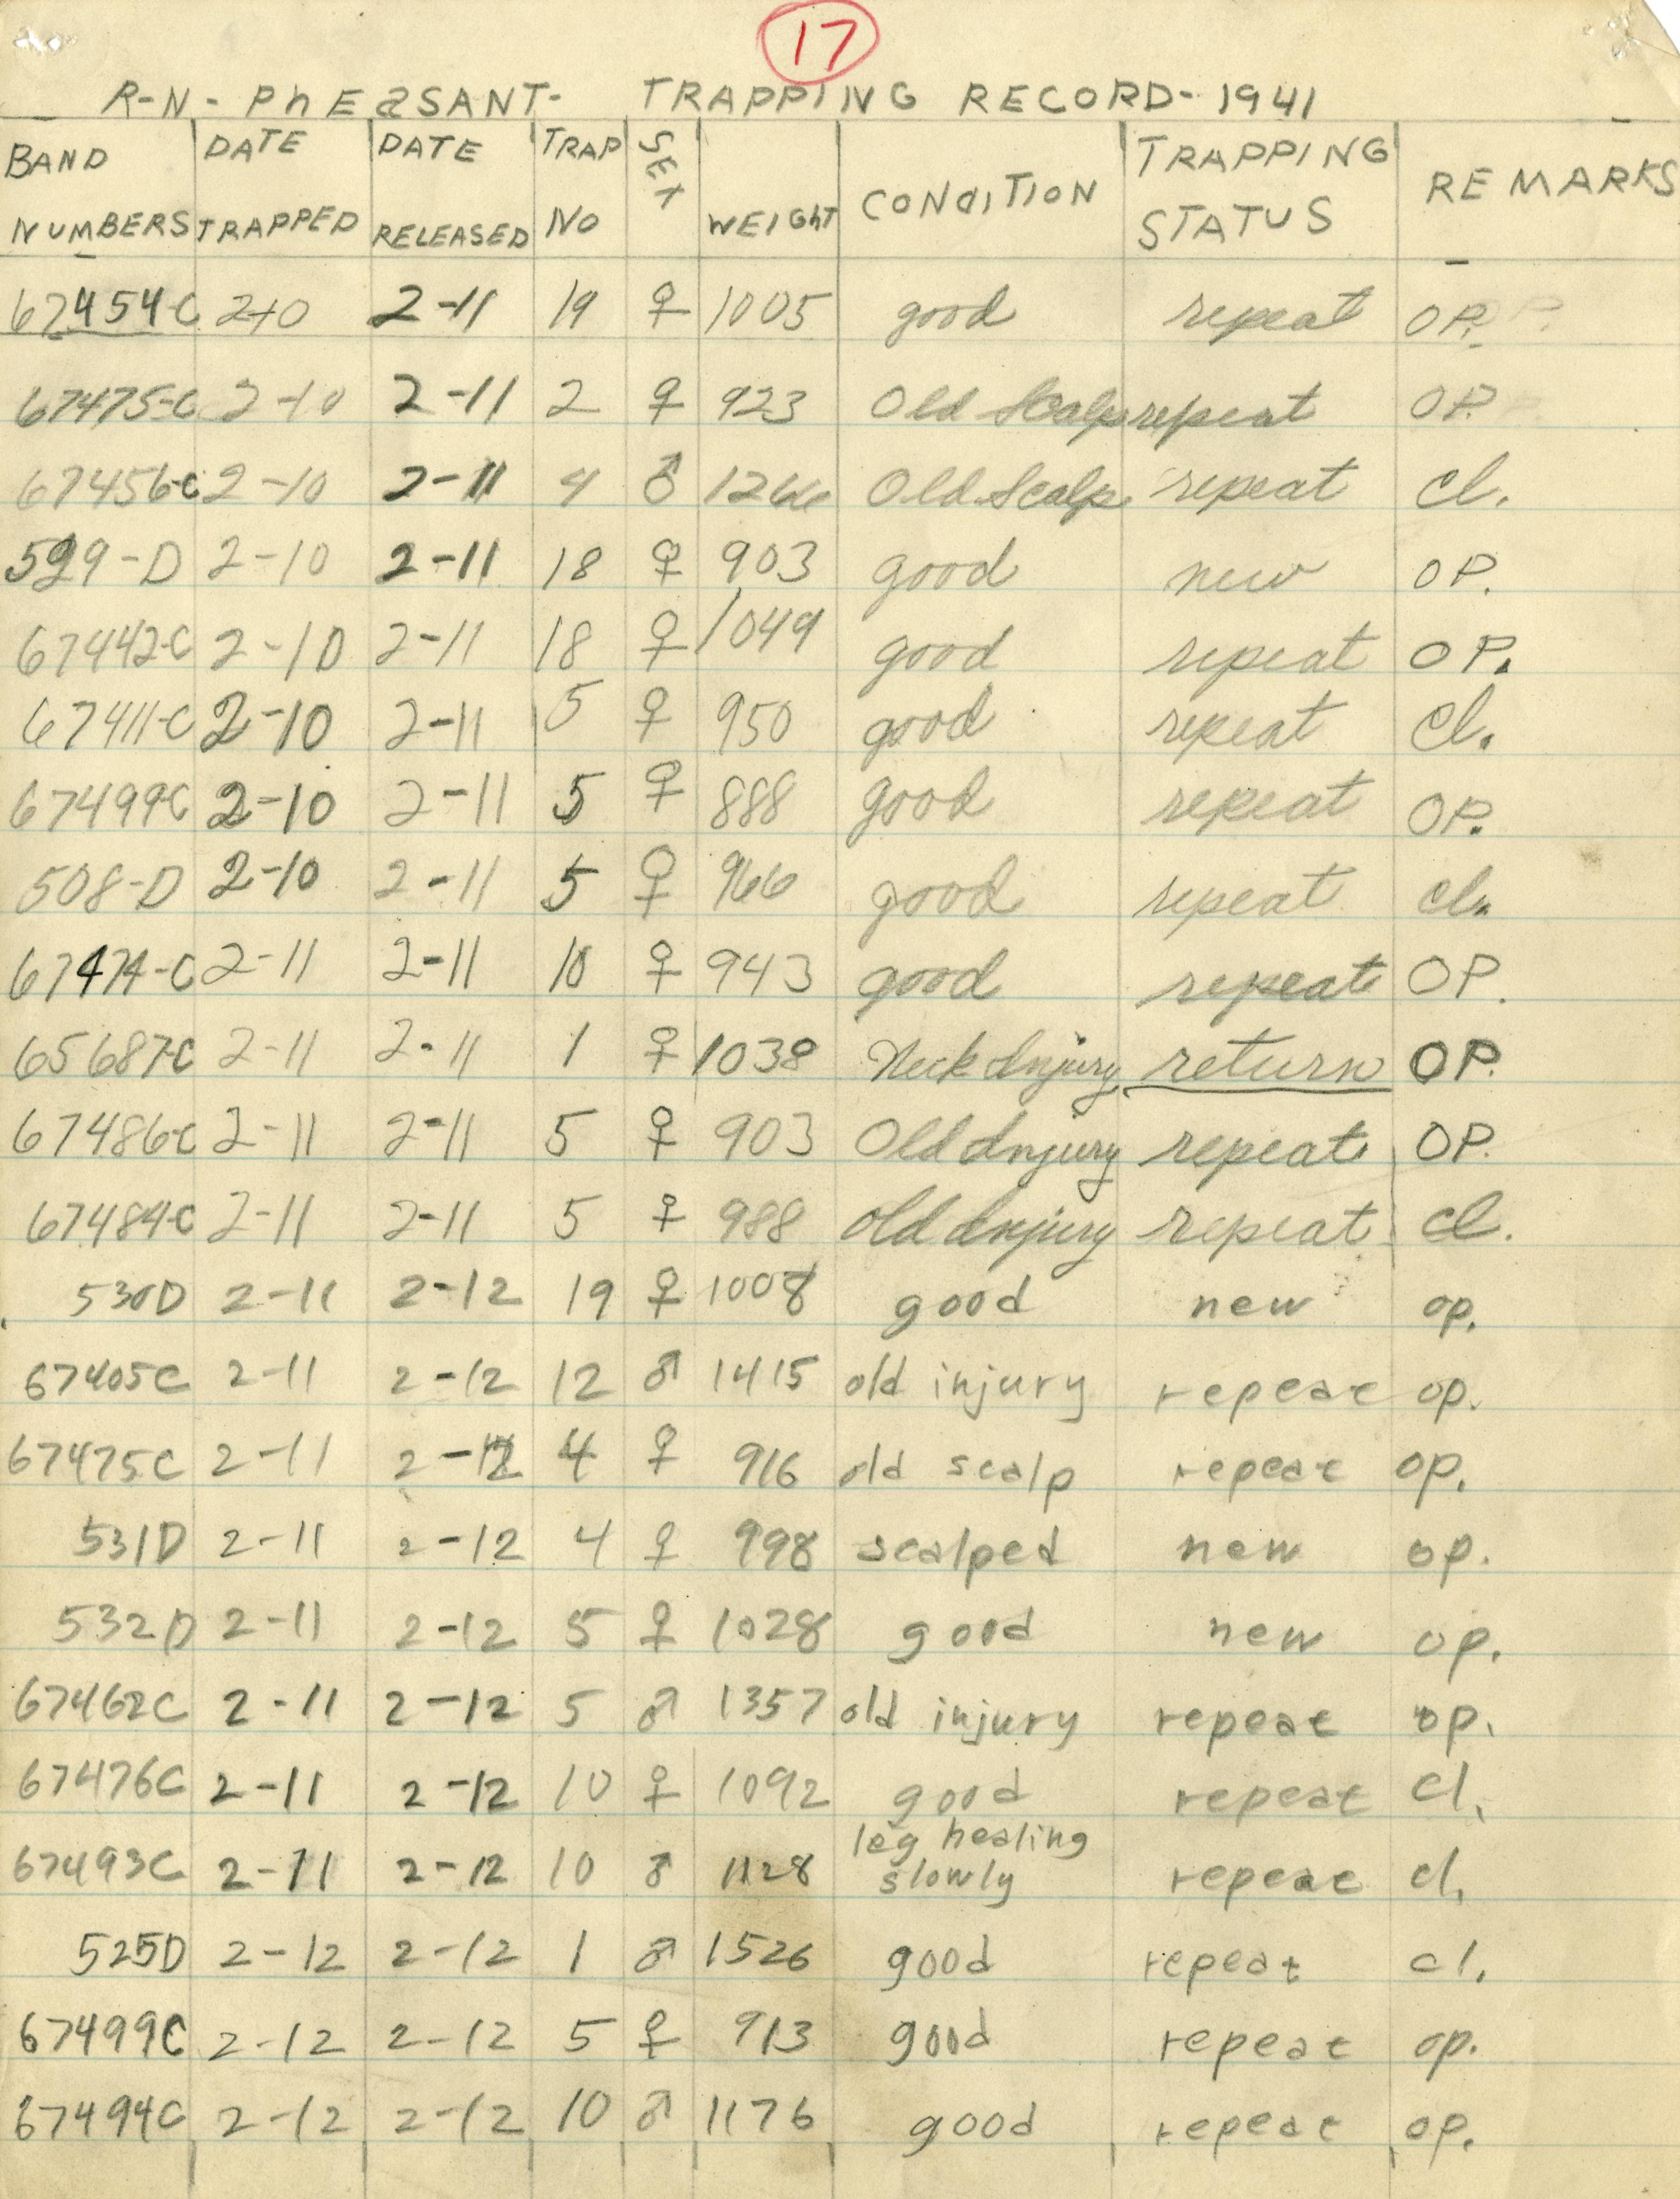 17
R-N- PhEaSANT- TRAPPING RECORD- 1941
BAND NUMBERS DATE TRAPPED DATE RELEASED TRAP NO SEX WEIGHT CONDITION TRAPPING STATUS REMARKS
67454-C 2-10 2-11 19 ♀ 1005 good repeat OP.
67475-C 2-10 2-11 2 ♀ 923 Old Scalp repeat OP.
67456-C 2-10 2-11 4 ♂ 1266 Old Scalp repeat Cl.
529-D 2-10 2-11 18 ♀ 903 good new OP.
67442-C 2-10 2-11 18 ♀ 1049 good repeat OP.
67411-C 2-10 2-11 5 ♀ 950 good repeat Cl.
67499-C 2-10 2-11 5 ♀ 888 good repeat OP.
508-D 2-10 2-11 5 ♀ 966 good repeat Cl.
67474-C 2-11 2-11 10 ♀ 943 good repeat OP.
65687-C 2-11 2-11 1 ♀ 1038 Neck Injury return OP.
67486-C 2-11 2-11 5 ♀ 903 Old Injury repeat OP.
67484-C 2-11 2-11 5 ♀ 988 old Injury repeat Cl.
530D 2-11 2-12 19 ♀ 1008 good new op.
67405C 2-11 2-12 12 ♂ 1415 old injury repeat op.
67475C 2-11 2-12 4 ♀ 916 old scalp repeat op.
531D 2-11 2-12 4 ♀ 998 scalped new op.
532D 2-11 2-12 5 ♀ 1028 good new op.
67462C 2-11 2-12 5 ♂ 1357 old injury repeat op.
67476C 2-11 2-12 10 ♀ 1092 good repeat cl.
67493C 2-11 2-12 10 ♂ 1128 leg healing slowly repeat cl.
525D 2-12 2-12 1 ♂ 1526 good repeat cl.
67499C 2-12 2-12 5 ♀ 913 good repeat op.
67494C 2-12 2-12 10 ♂ 1176 good repeat op.